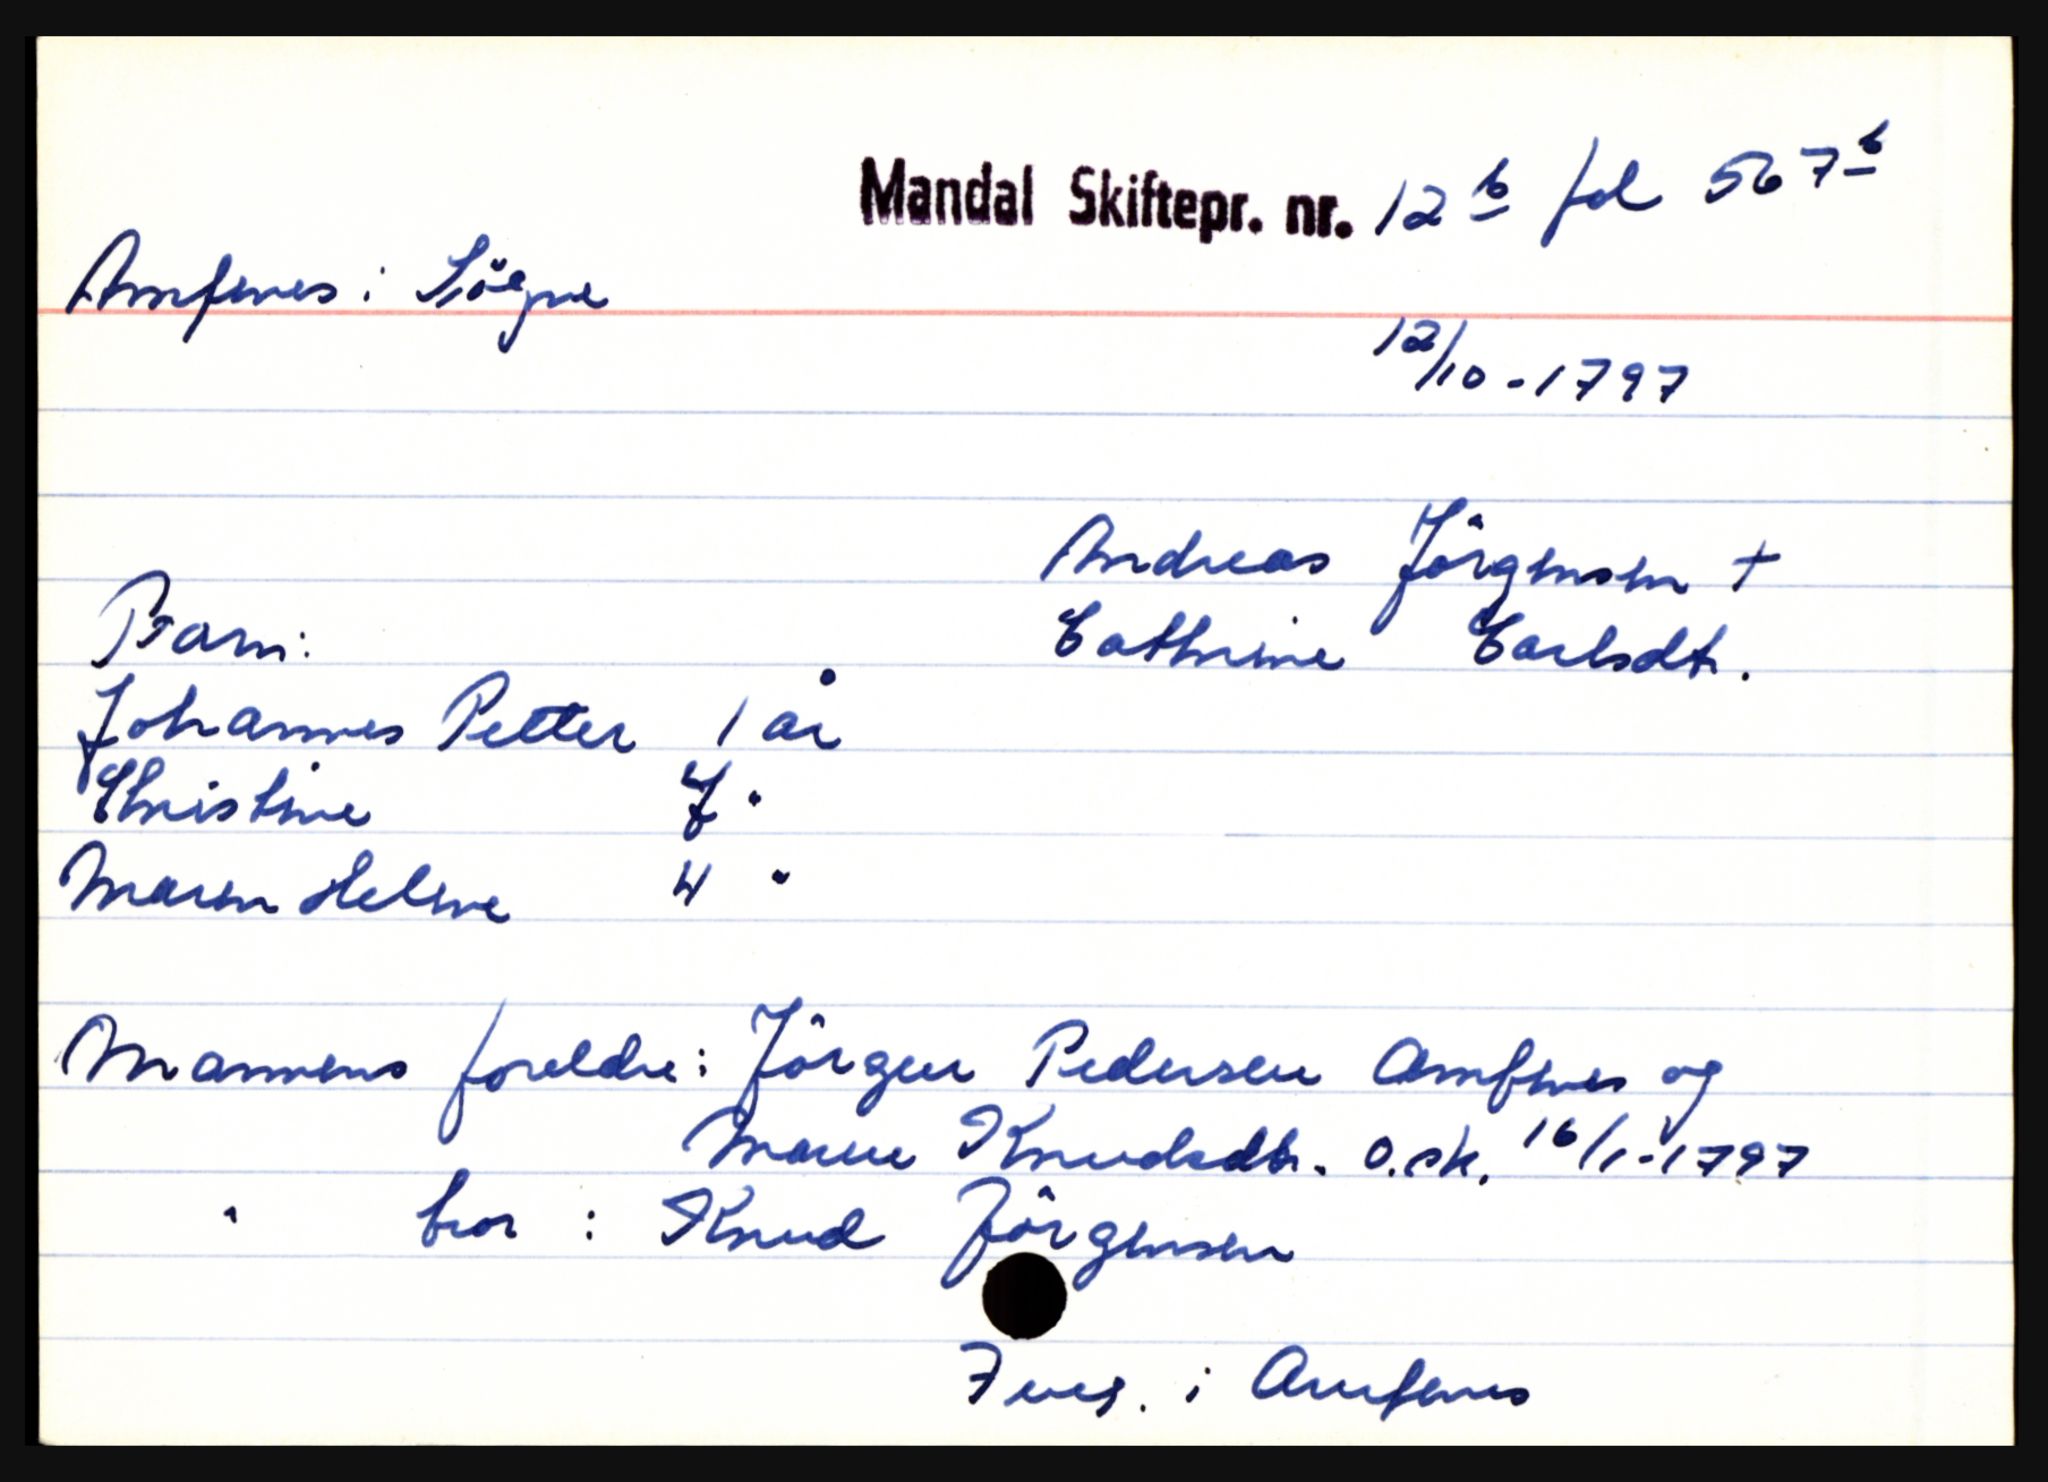 Mandal Skiftepr. nr. 12 b fol 567 b
Amfenes i Sögne
12/10-1797
Andreas Jörgensen +
Barn: Cathrine Carlsdtr.
Johannes Petter 1 år
Christine 7 "
Maren Helene 4 "
Mannens foreldre: Jörgen Pedersen Amfenes og
Maren Knudsdtr. o.sk. 16/1-1797
" bror : Knud Jörgensen
7 i Amfenes